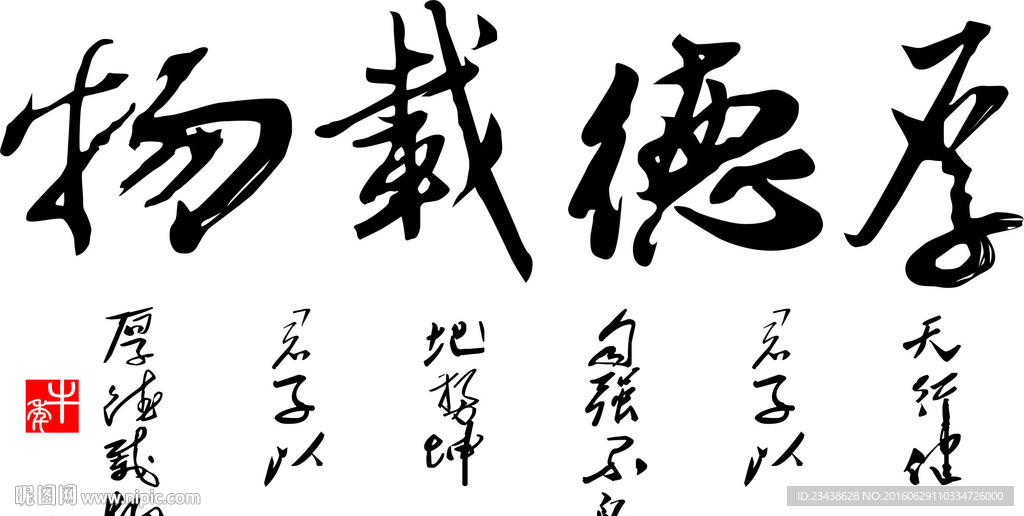 厚德载物
天行健
君子以
自强不息
地势坤
君子以
厚德载物
昵图网 www.nipic.com
ID:23438628 NO:20160629110334726000